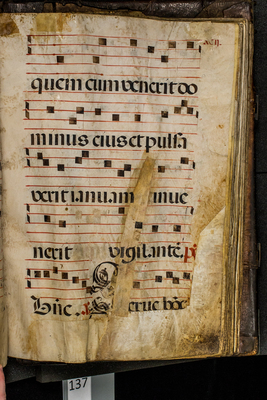 quem cum venerit do
minus eius et pulsa
verit ianuam inue
nerit vigilantē. p̄
būc. Serue bōe
137